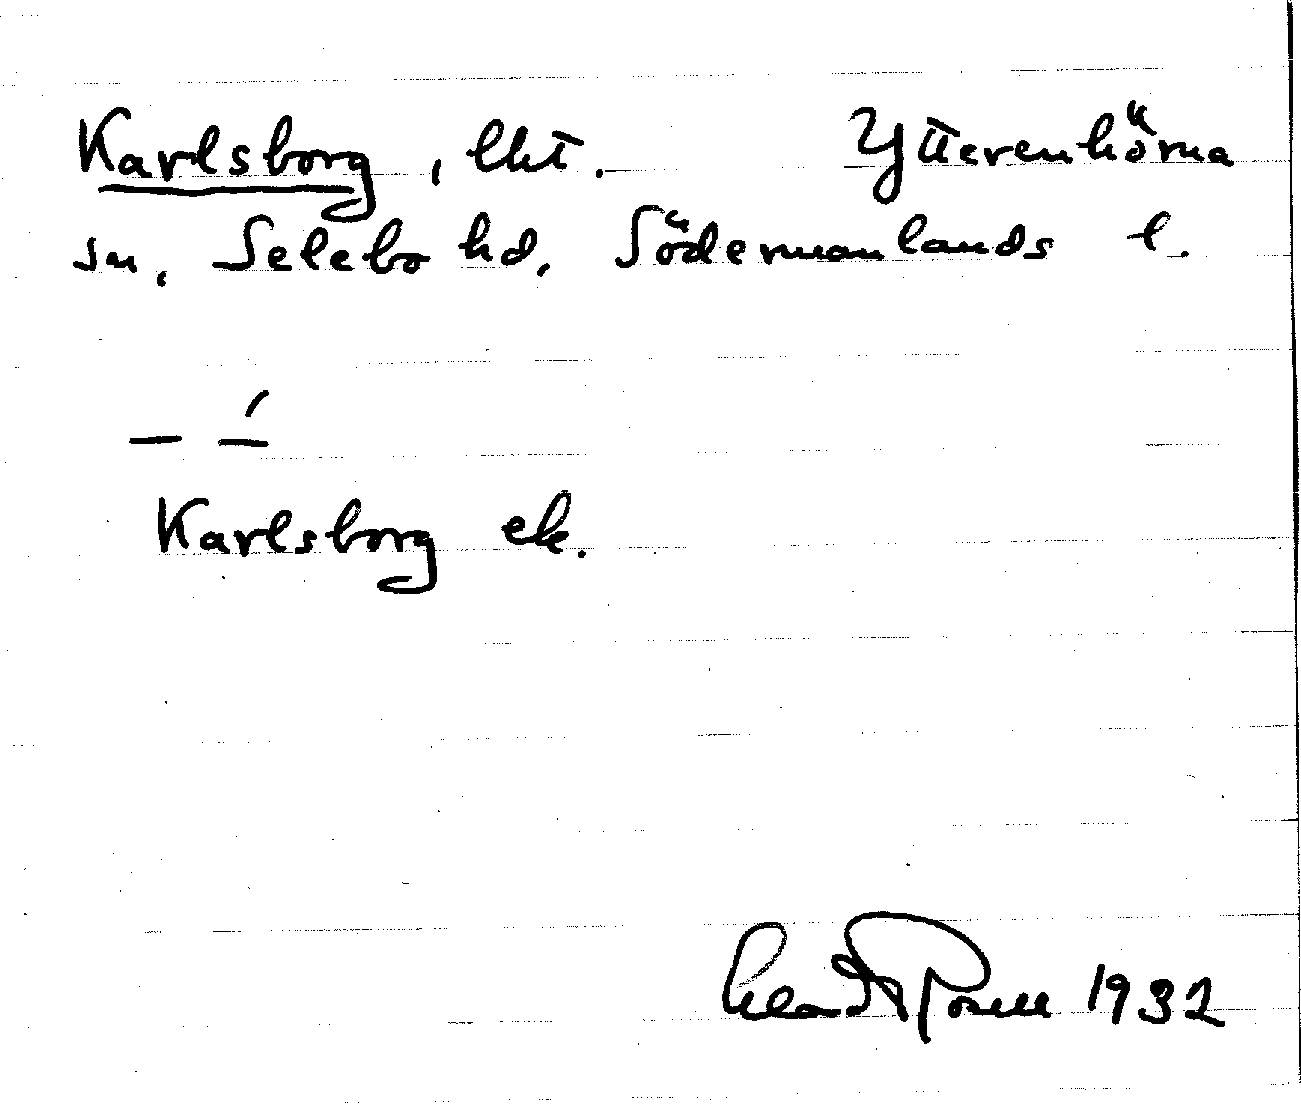 Karlsborg, lht. Ytterenhörna
sn, Selebo hd, Södermanlands l.
Karlsborg ek.
1932